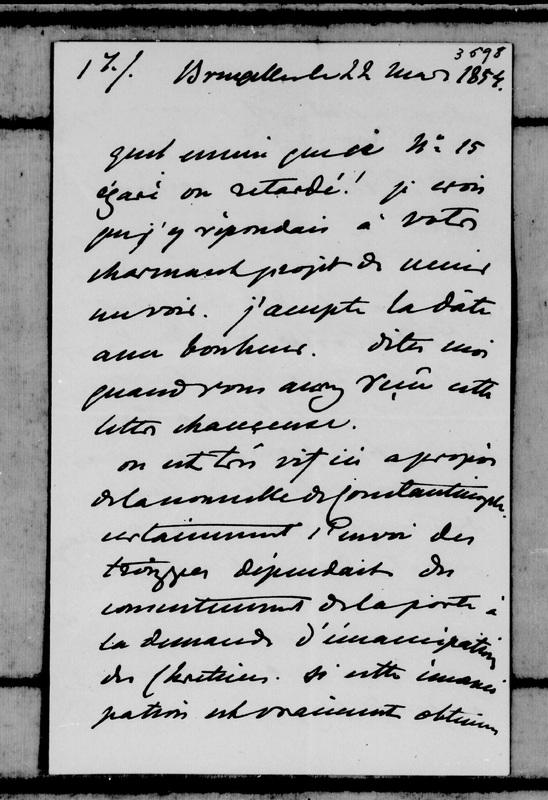 3698
17/. Bruxelles le 22 mars 1854.
quel ennui que ce N° 15
égaré ou retardé! je crois
que j'y répondais à votre
charmant projet de venir
me voir. j'accepte la date
avec bonheur. dites moi
quand vous aurez reçu cette
lettre
on est très vif ici apropos
de la nouvelle de Constantinople.
certainement l'envoi des
troupes dépendait du
consentement de la porte à
la demande d'émancipation
des Chretiens. si cette émanci
pation est vraiment obtenue